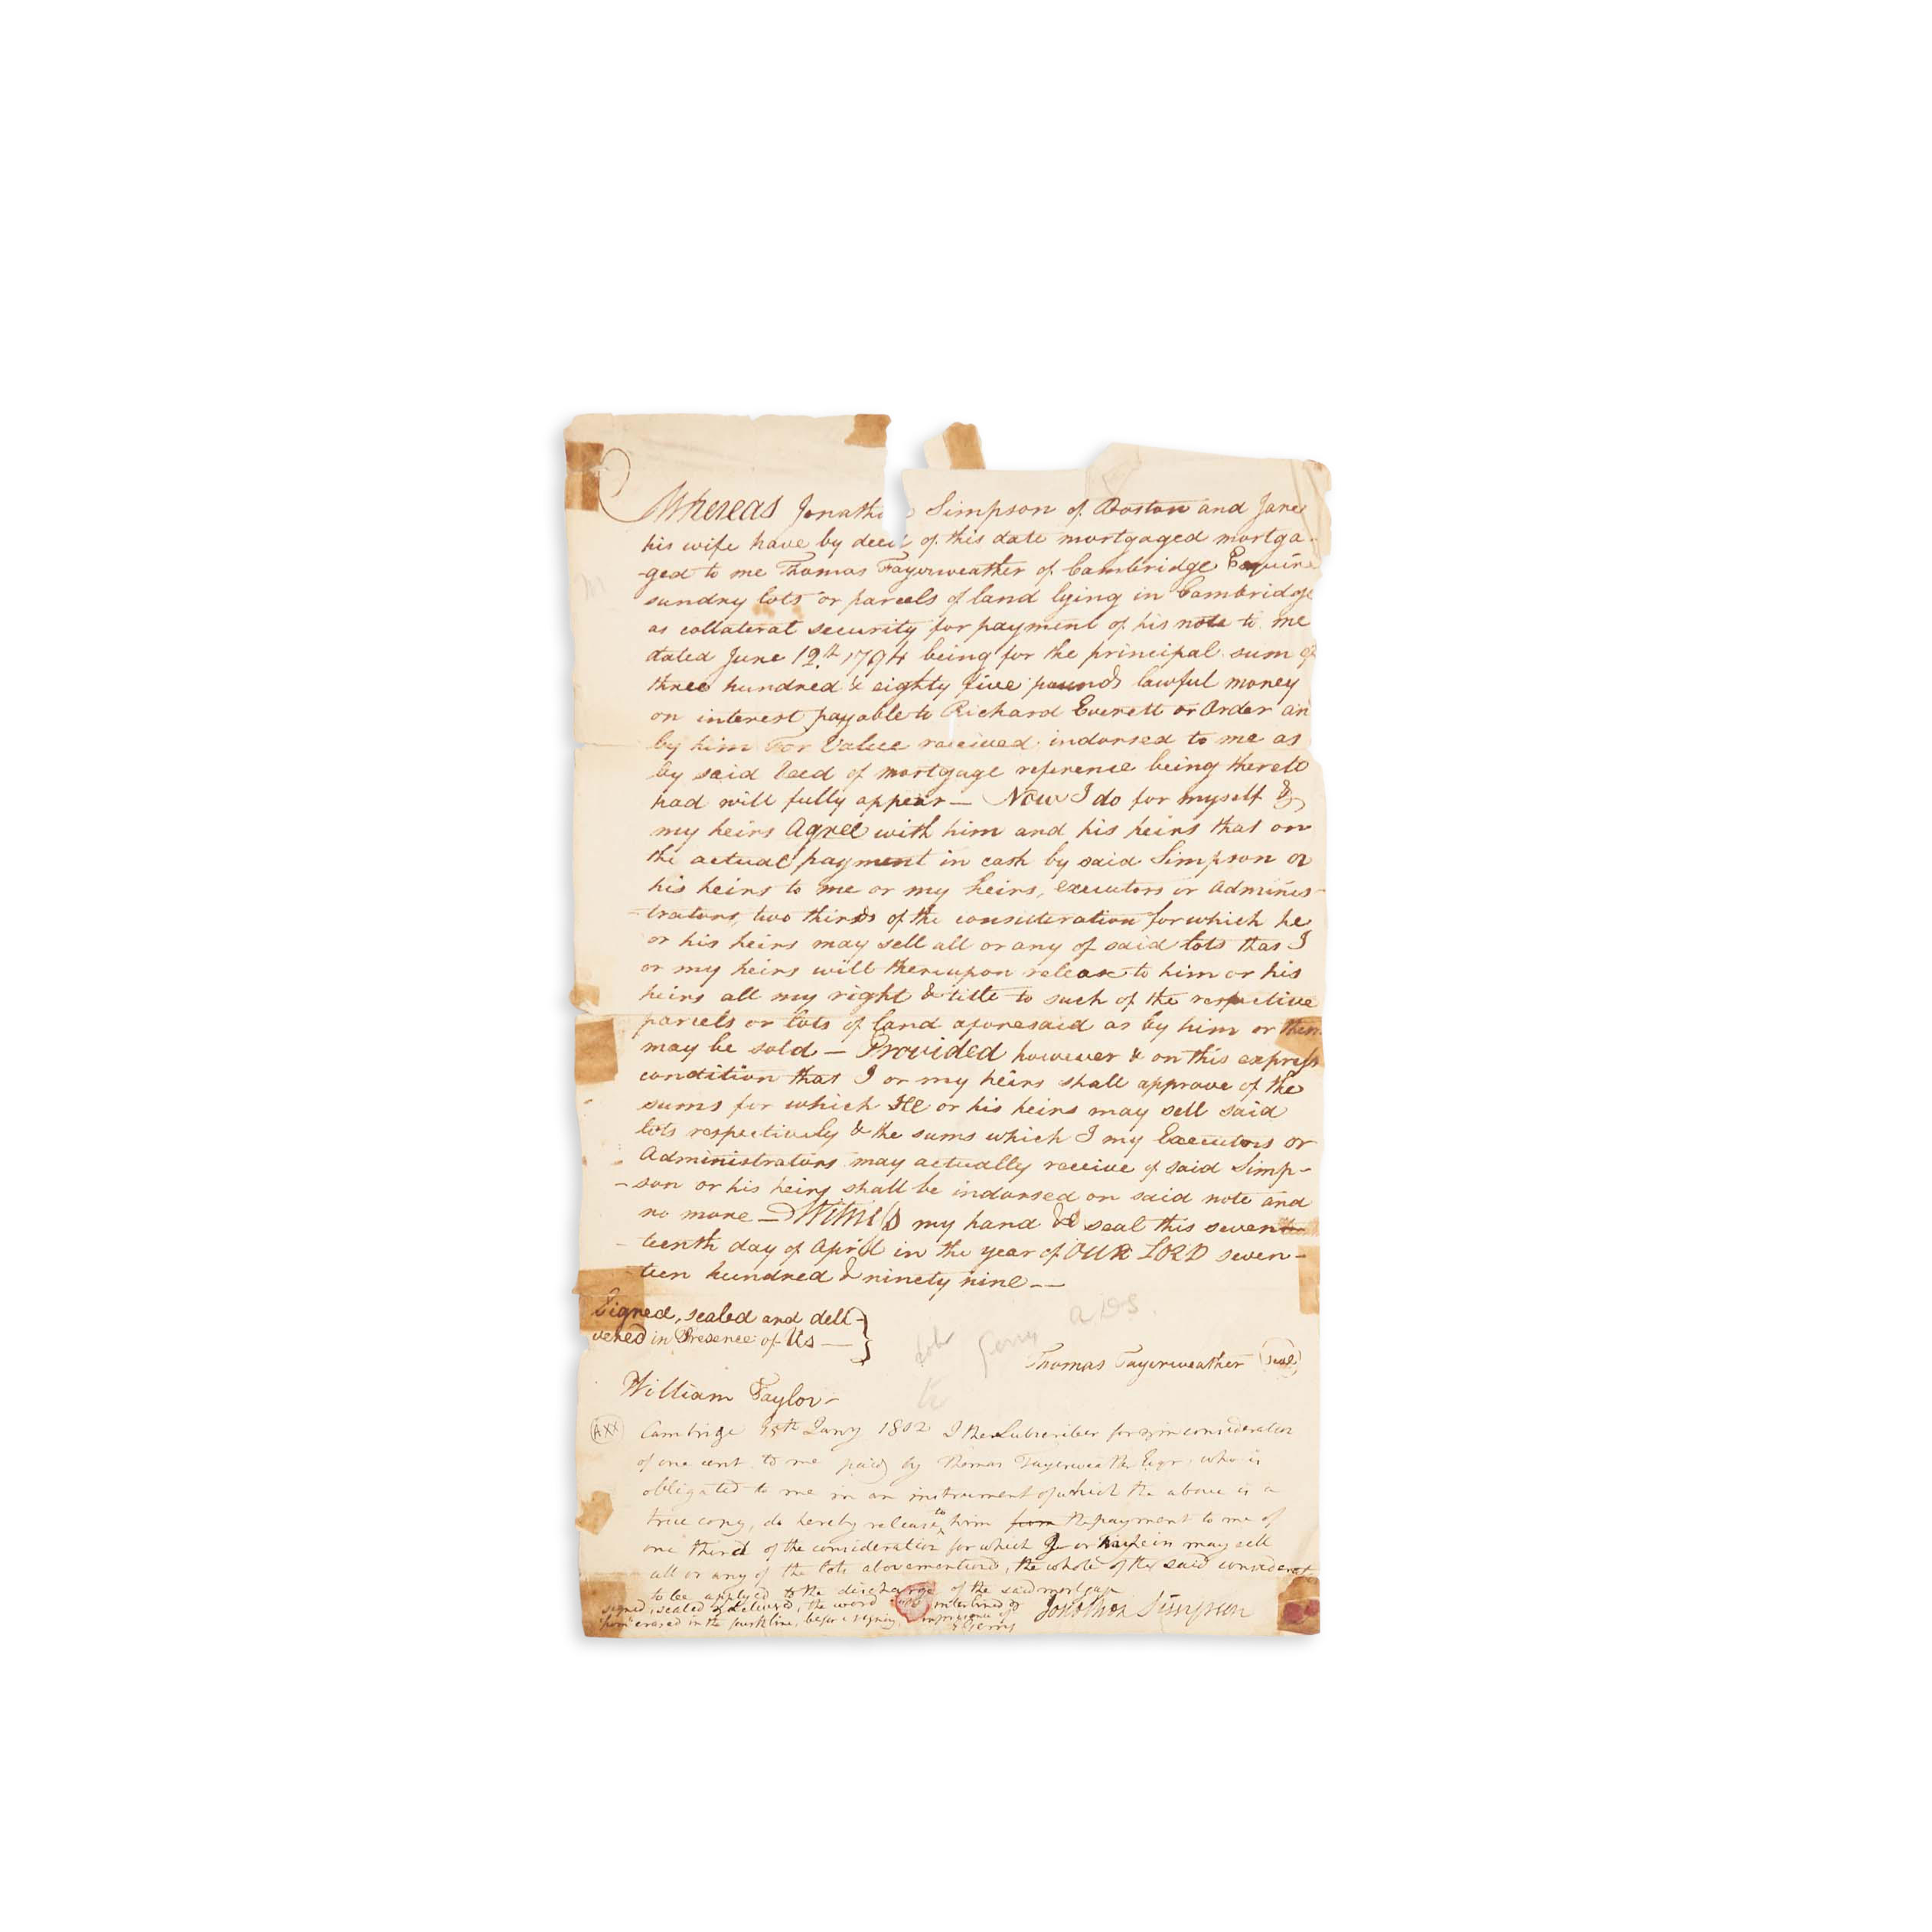 Whereas Jonatha Simpson of Boston and Jane
his wife have by deed of this date mortgaged mortga-
-ged to me Thomas Fayerweather of Cambridge Esquire
sundry lots or parcels of land lying in Cambridge
as collateral security for payment of his note to me
dated June 12th 1794 being for the principal sum of
three hundred & eighty five pounds lawful money
on interest payable to Richard Everett or Order an
by him For Value received indorsed to me as
by said Deed of mortgage reference being thereto
had will fully appear — Now I do for myself &
my heirs Agree with him and his heirs that on
the actual payment in cash by said Simpson or
his heirs to me or my heirs, executors or Adminis-
-trators, two thirds of the consideration for which he
or his heirs may sell all or any of said lots that I
or my heirs will thereupon release to him or his
heirs all my right & title to such of the respective
parcels or lots of land aforesaid as by him or them
may be sold — Provided however & on this express
condition that I or my heirs shall approve of the
sums for which He or his heirs may sell said
lots respectively & the sums which I my Executors or
Administrators may actually receive of said Simp-
-son or his heirs shall be indorsed on said note and
no more — Witness my hand & seal this seven
-teenth day of April in the year of OUR LORD seven-
-teen hundred & ninety nine —
Signed, sealed and deli-
vered in Presence of Us —
ADS.
Gerry
Thomas Fayerweather (seal)
William Taylor
AXX
Cambrige 15th Jany 1802 I the Subscriber for & in consideration
of one cent to me paid by Thomas Fayerweather Esqr. who is
obligated to me in an instrument of which the above is a
true copy, do hereby release to him from the payment to me of
one third of the consideration for which I or my heirs may sell
all or any of the lots abovementiond, the whole of the said considerat
to be applyed to the discharge of the said mortgage
signed, sealed & delivered, the word "to" interlined &
"from" erased in the fourth line, before signing, in presence of
Jonathan Simpson
E Gerry